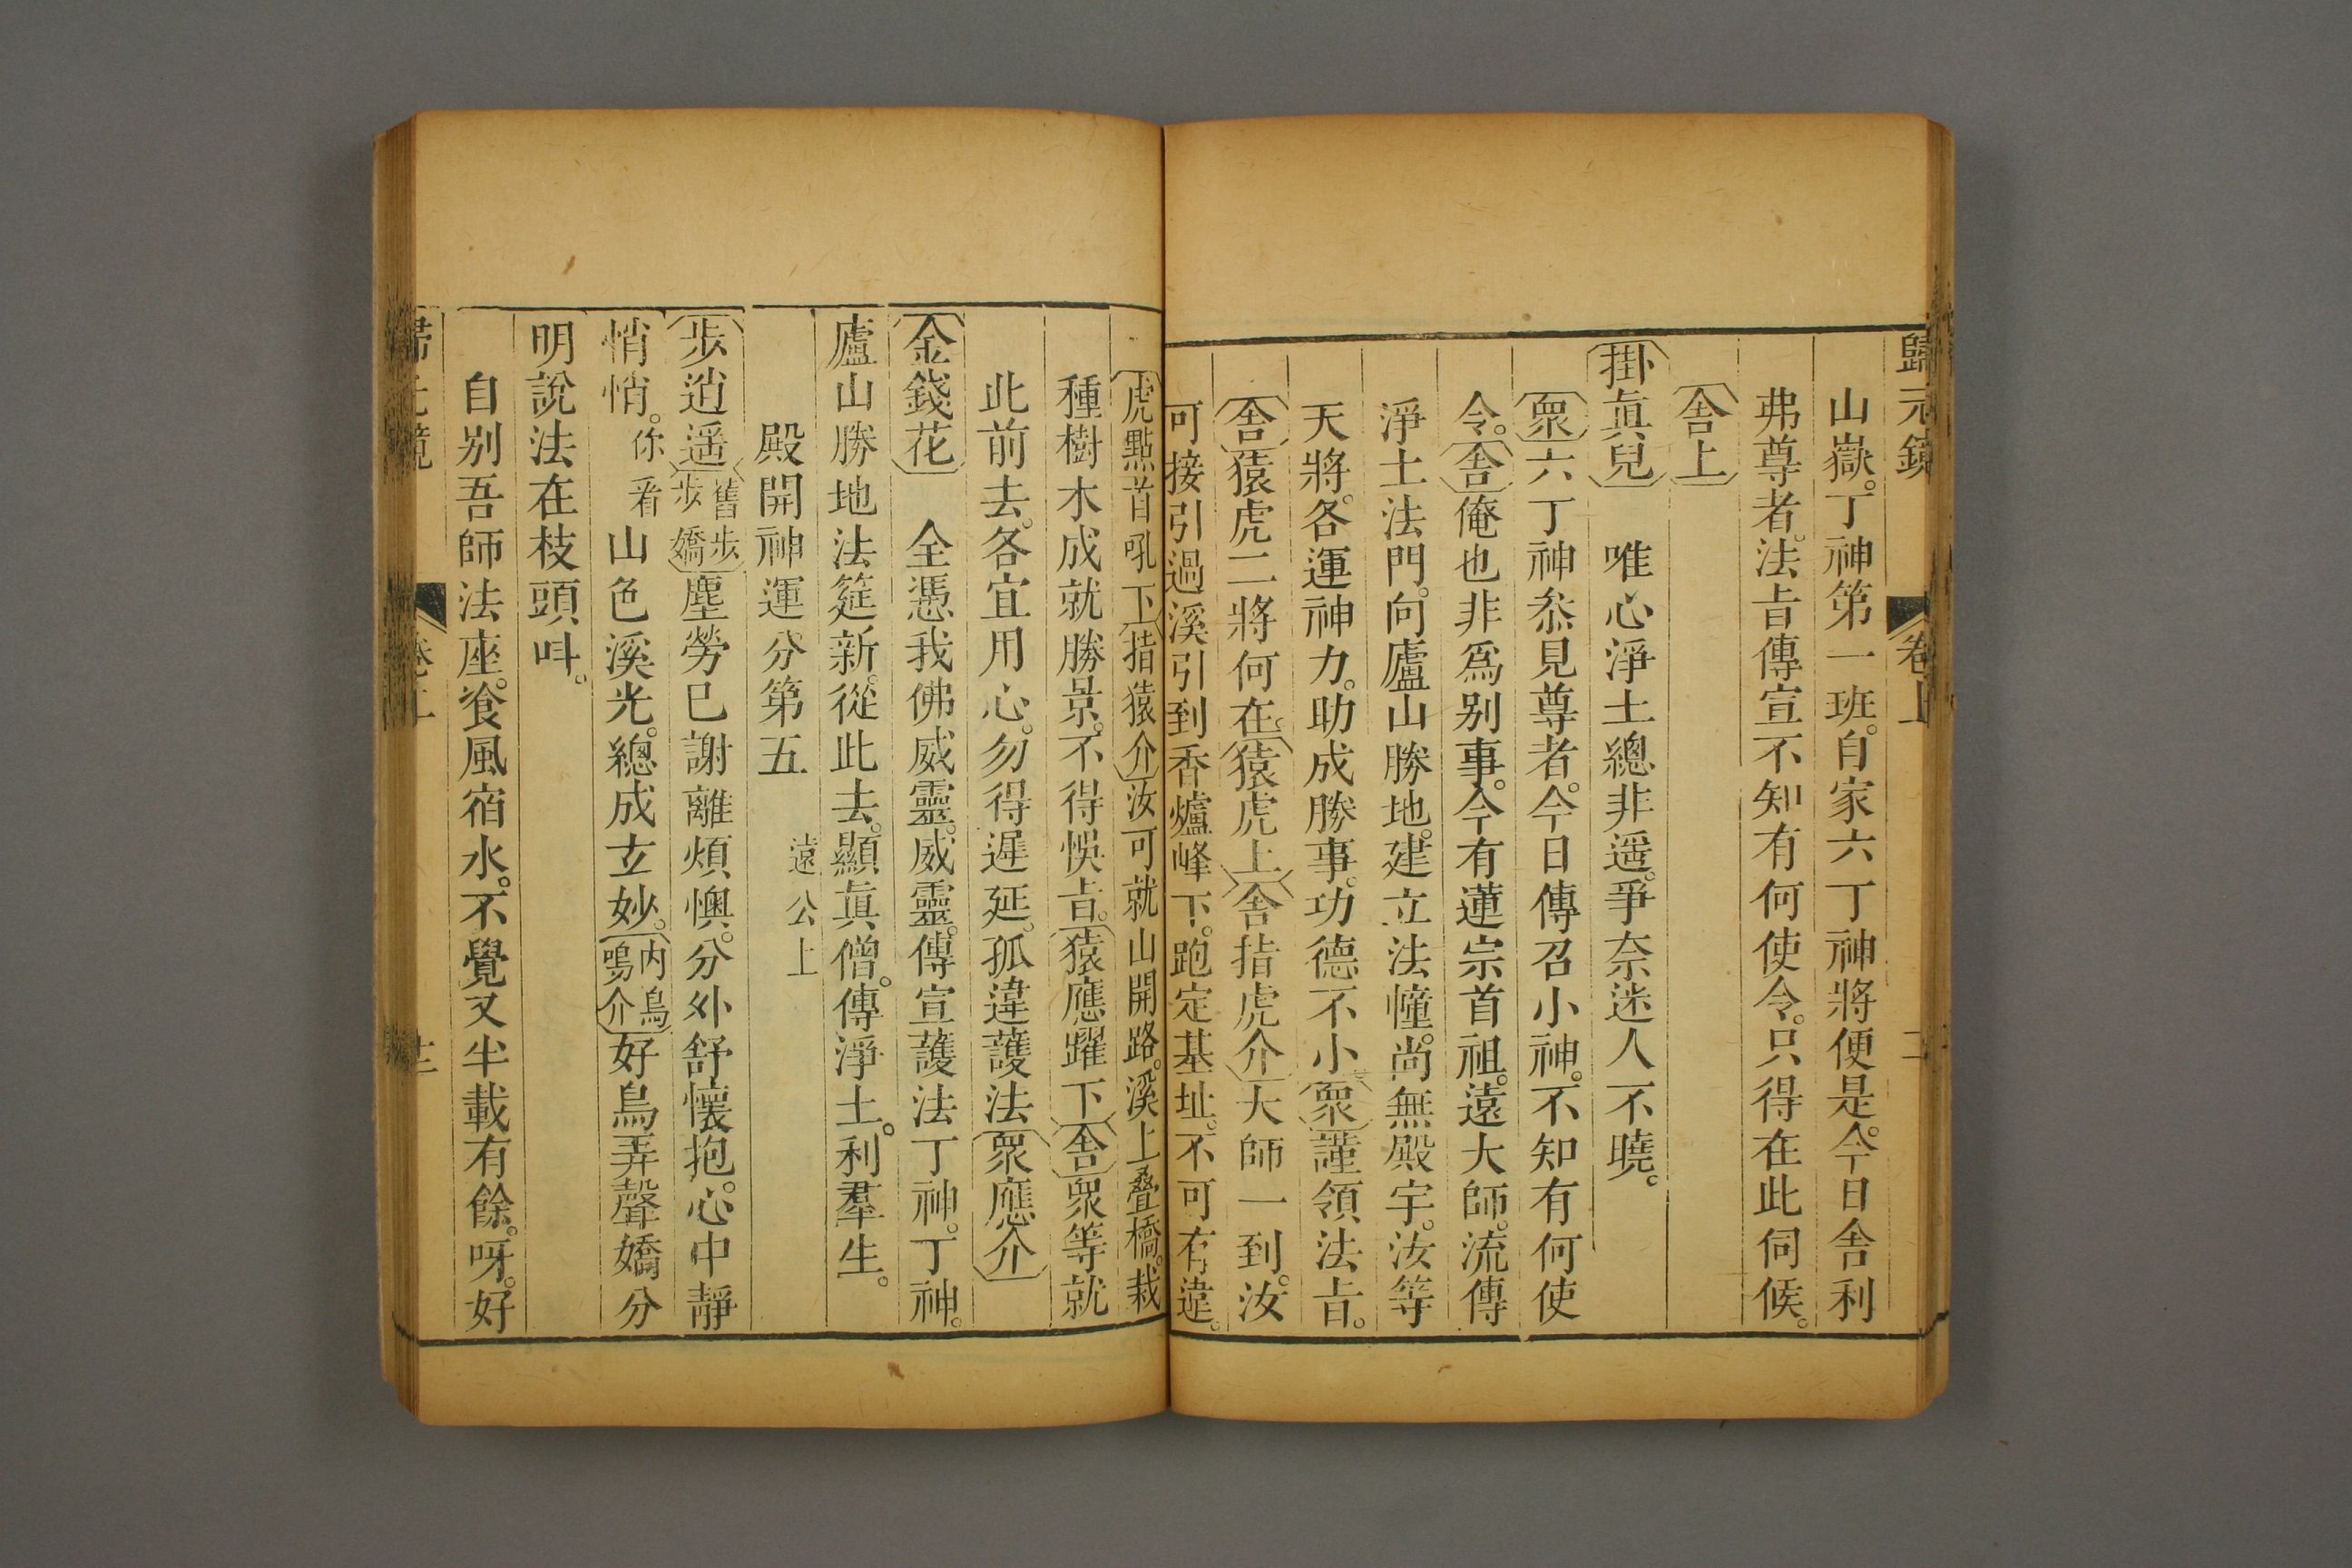 歸元鏡 卷上
山嶽。丁神第一班。自家六丁神將便是。今日舍利
弗尊者。法旨傳宣。不知有何使令。只得在此伺候。
舍上
掛真兒 唯心淨土總非遥。爭奈迷人不曉。
眾六丁神叅見尊者。今日傳召小神。不知有何使
令。舍俺也非爲别事。今有蓮宗首祖。遠大師。流傳
淨土法門。向廬山勝地。建立法幢。尚無殿宇。汝等
天將。各運神力。助成勝事。功德不小眾謹領法旨。
舍猿虎二將何在。猿虎上舍指虎介大師一到。汝
可接引過溪。引到香爐峰下。跑定基址。不可有違。
虎點首吼下指猿介汝可就山開路。溪上叠橋。栽
種樹木。成就勝景。不得悞旨。猿應躍下舍眾等就
此前去。各宜用心。勿得遲延。孤違護法眾應介
金錢花 全憑我佛威靈。威靈。傳宣護法丁神。丁神。
廬山勝地法筵新。從此去。顯真僧。傳淨土。利羣生。
殿開神運分第五 遠公上
步逍遥舊步步嬌塵勞已謝離煩懊。分外舒懷抱。心中靜
悄悄。你看山色溪光。總成玄妙。内鳥鳴介好鳥弄聲嬌分
明說法在枝頭呌。
自别吾師法座。飡風宿水。不覺又半載有餘。呀。好